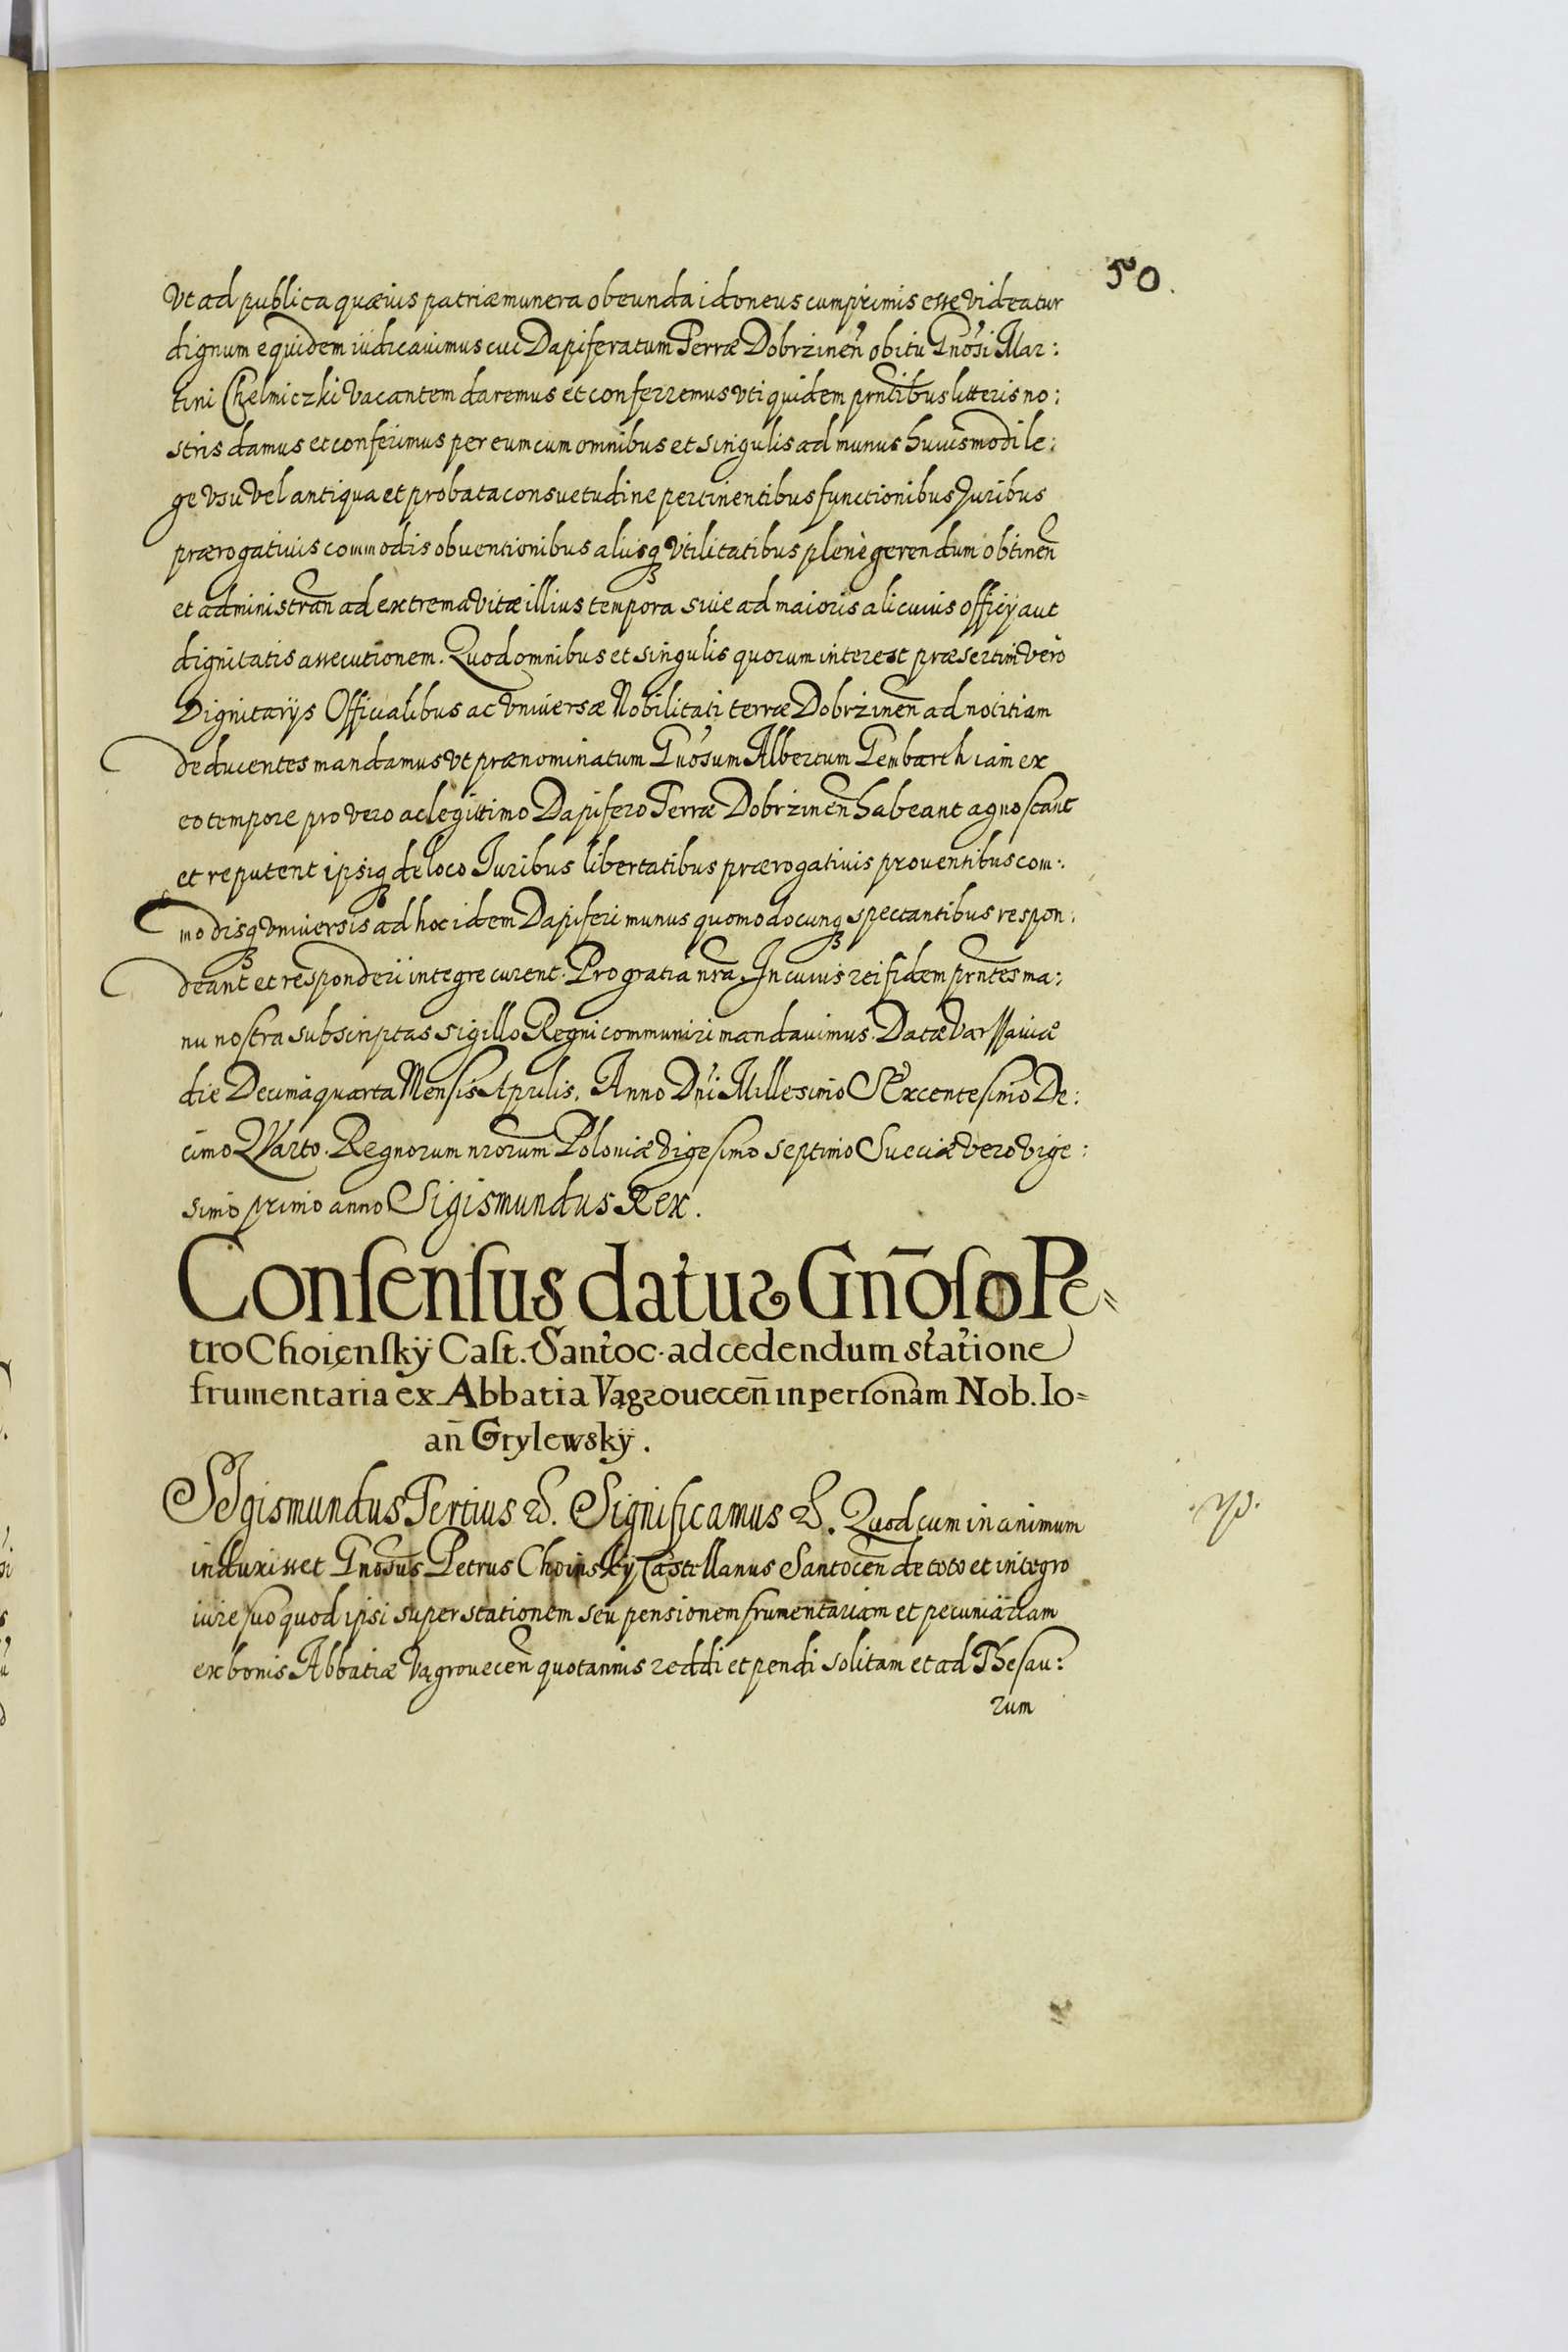 50.
Vt ad publica quæuis patriæ munera obeunda idoneus cumprimis esse videatur
dignum equidem iudicauimus cui Dapiferatum Terræ Dobrzineñ obitu Gnosi Mar:
tini Chelmiczki vacantem daremus et conferremus vti quidem pñtibus litteris no:
stris damus et conferimus per eum cum omnibus et singulis ad munus huiusmodi le:
ge vsu vel antiqua et probata consuetudine pertinentibus functionibus Juribus
prærogatiuis commodis obuentionibus alijsq3 vtilitatibus plenè gerendum obtineñ
et administrañ ad extrema vitæ illius tempora siue ad maioris alicuius officij aut
dignitatis assecutionem. Quod omnibus et singulis quorum interest præsertim vero
Dignitarijs Officialibus ac vniuersæ Nobilitati terræ Dobrzineñ ad notitiam
deducentes mandamus vt prænominatum Gnosum Albertum Gembarth iam ex
eo tempore pro vero ac legittimo Dapifero Terræ Dobrzineñ habeant agnoscant
et reputent ipsiq3 de loco Iuribus libertatibus prærogatiuis prouentibus com:
modisq3 vniuersis ad hoc idem Dapiferi munus quomodocunq3 spectantibus respon:
deant et responderi integre curent. Pro gratia nra. In cuius rei fidem prntes ma:
nu nostra subscriptas sigillo Regni communiri mandauimus. Datæ Varssauiæ
die Decima quarta Mensis Aprilis. Anno Dni Millesimo Sexcentesimo De:
cimo Qvarto. Regnorum nrorum Poloniæ vigesimo septimo Sueciæ vero vige:
simo primo anno Sigismundus Rex.
Consensus datus Gñoso Pe=
tro Choiensky Cast. Santoc. ad cedendum statione
frumentaria ex Abbatia Vągroueceñ in personam Nob. Io=
añ Grylewsky.
Sigismundus Tertius &. Significamus &. Quod cum in animum
induxisset Gnosus Petrus Choinsky Castellanus Santoceñ de toto et integro
iure suo quod ipsi super stationem seu pensionem frumentariam et pecuniariam
ex bonis Abbatiæ Vągroueceñ quotannis reddi et pendi solitam et ad Thesau:
rum